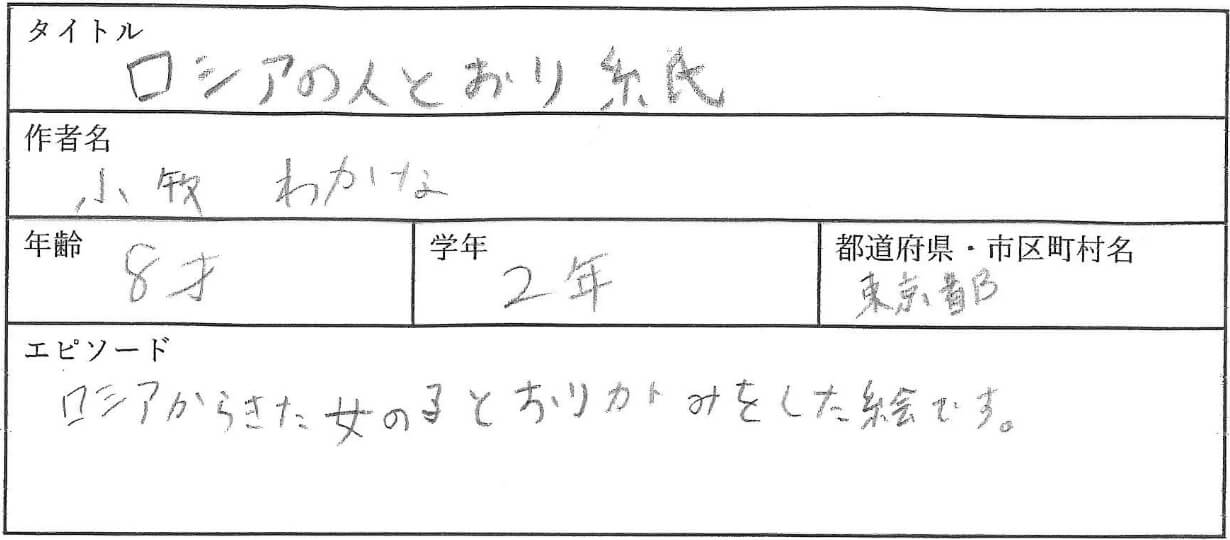 タイトル
ロシアの人とおり紙
作者名
小牧 わかな
年齢
8才
学年
2年
都道府県・市区町村名
東京都
エピソード
ロシアからきた女の子とおりカトみをした絵です。